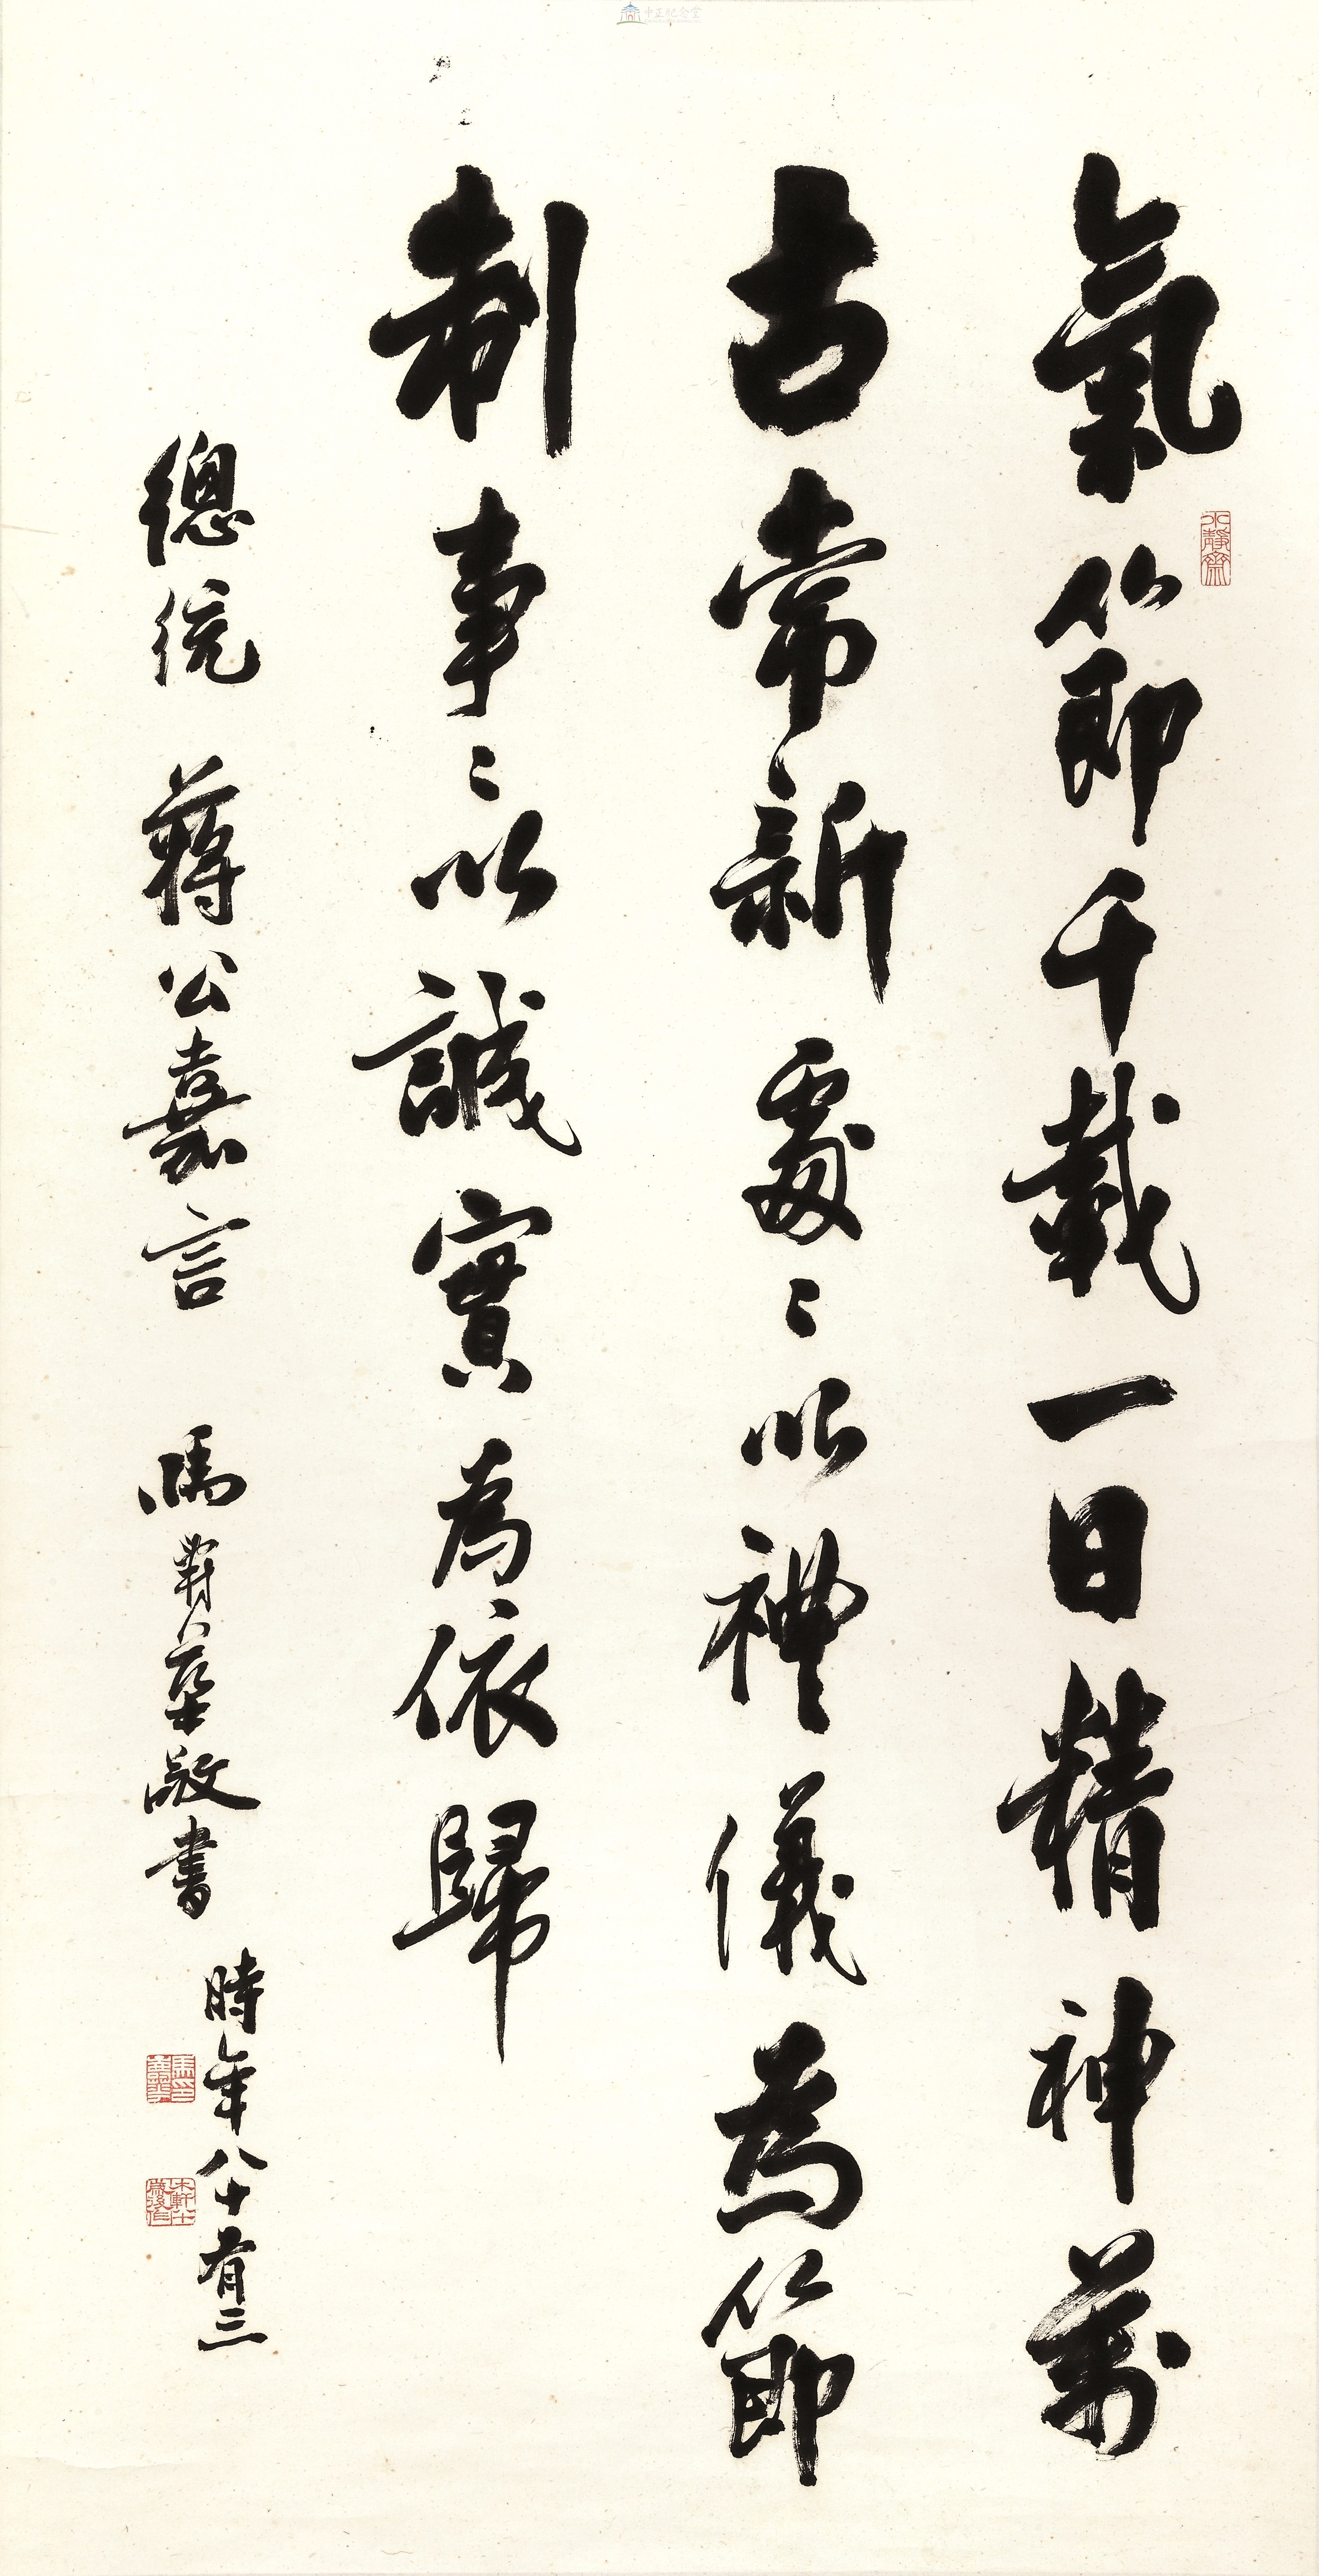 氣節千載一日精神萬
古常新處〻以禮儀為節
制事〻以誠實為依歸
總統 蔣公嘉言 馮
敬書
時年八十有三
中正紀念堂